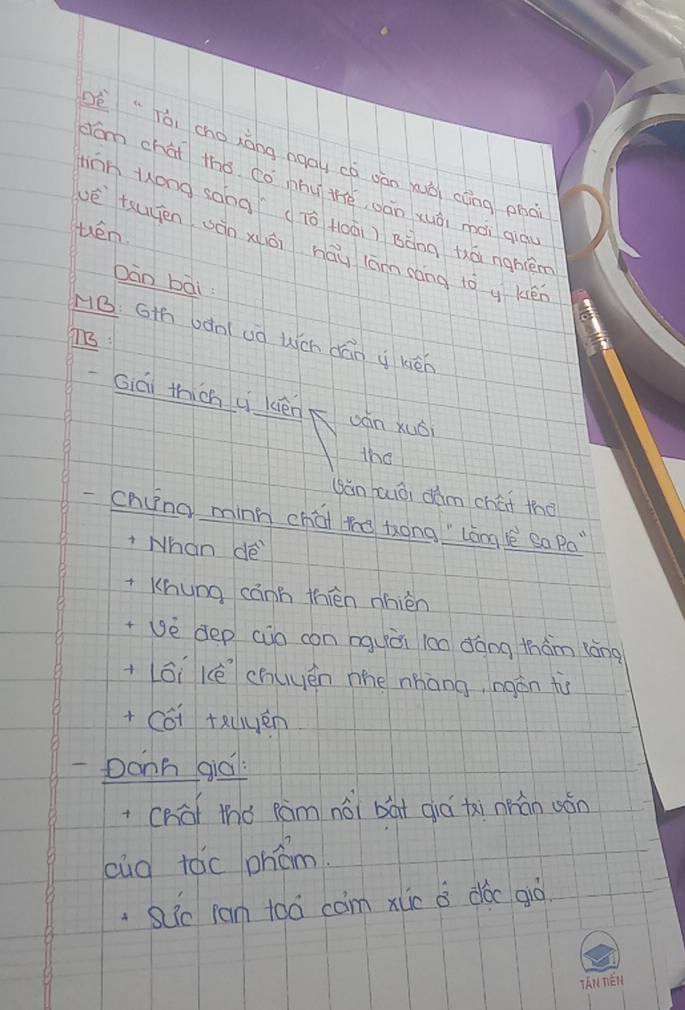 Đề "Tôi cho rằng ngay cả văn xuôi cũng phải
đậm chất thơ. Có như thế, văn xuôi mới giàu
tính trong sáng" (Tô Hoài) Bằng trải nghiệm
về truyện, văn xuôi hãy làm sáng tỏ ý kiến
trên.
Dàn bài:
MB: Gth vđnl và trích dẫn ý kiến
TB:
- Giải thích ý kiến văn xuôi
thơ
văn xuôi đậm chất thơ
- Chứng minh chất thơ trong "Lặng lẽ Sa Pa"
+ Nhan đề
+ Khung cảnh thiên nhiên
+ Vẻ đẹp của con người lao động thầm lặng
+ Lối kể chuyện nhẹ nhàng, ngôn từ
+ Cốt truyện
- Đánh giá:
+ Chất thơ làm nổi bật giá trị nhân văn
của tác phẩm.
+ Sức lan toả cảm xúc ở độc giả.
TÂN TIẾN